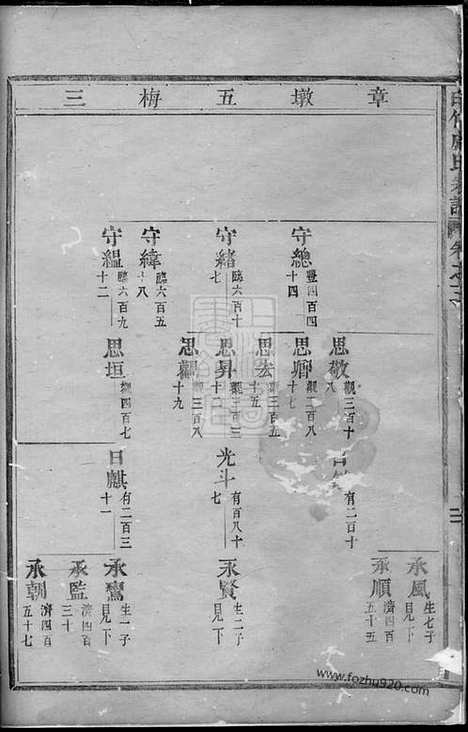 章墩五梅三
守總
豐四百四
十四
守緒
臨六百十
守緯
臨六百五
十八
守緼
臨六百九
十二
思敬
觀三百十
八
思卿
十七
思玄
十五
思昇
十二
思觀
觀三百八
十九
思垣
觀四百七
有二百十
光斗
有百八十
七
日麒
有二百三
十一
承風
生七子
見下
承順
濟四百
五十五
承賢
生二子
見下
承鸞
生一子
見下
承監
濟四百
三十
承朝
濟四百
五十七
www.fozhu920.com